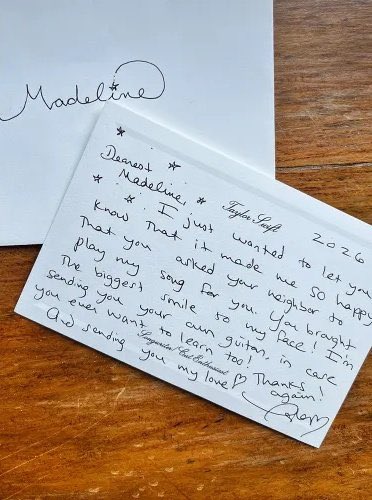 Madeline
Taylor Swift
2026
Dearest
Madeline,
I just wanted to let you
know that it made me so happy
that you asked your neighbor to
play my song for you. You brought
the biggest smile to my face! I'm
sending you your own guitar, in case
you ever want to learn too!
And sending you my love ♡ Thanks
again!
Songwriter/Cat Enthusiast